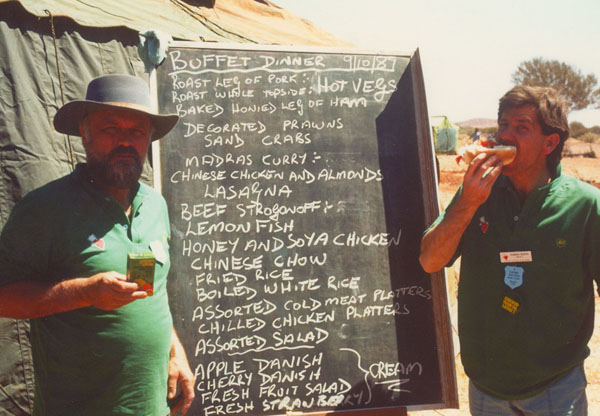 BUFFET DINNER 9/10/87
ROAST LEG OF PORK:
ROAST WHOLE TOPSIDE: HOT VEGS
BAKED HONIED LEG OF HAM
DECORATED PRAWNS
SAND CRABS
MADRAS CURRY :-
CHINESE CHICKEN AND ALMONDS
LASAGNA
BEEF STROGONOFF :-
LEMON FISH
HONEY AND SOYA CHICKEN
CHINESE CHOW
FRIED RICE
BOILED WHITE RICE
ASSORTED COLD MEAT PLATTERS
CHILLED CHICKEN PLATTERS
ASSORTED SALAD
APPLE DANISH
CHERRY DANISH
FRESH FRUIT SALAD
FRESH STRAWBERRY
CREAM